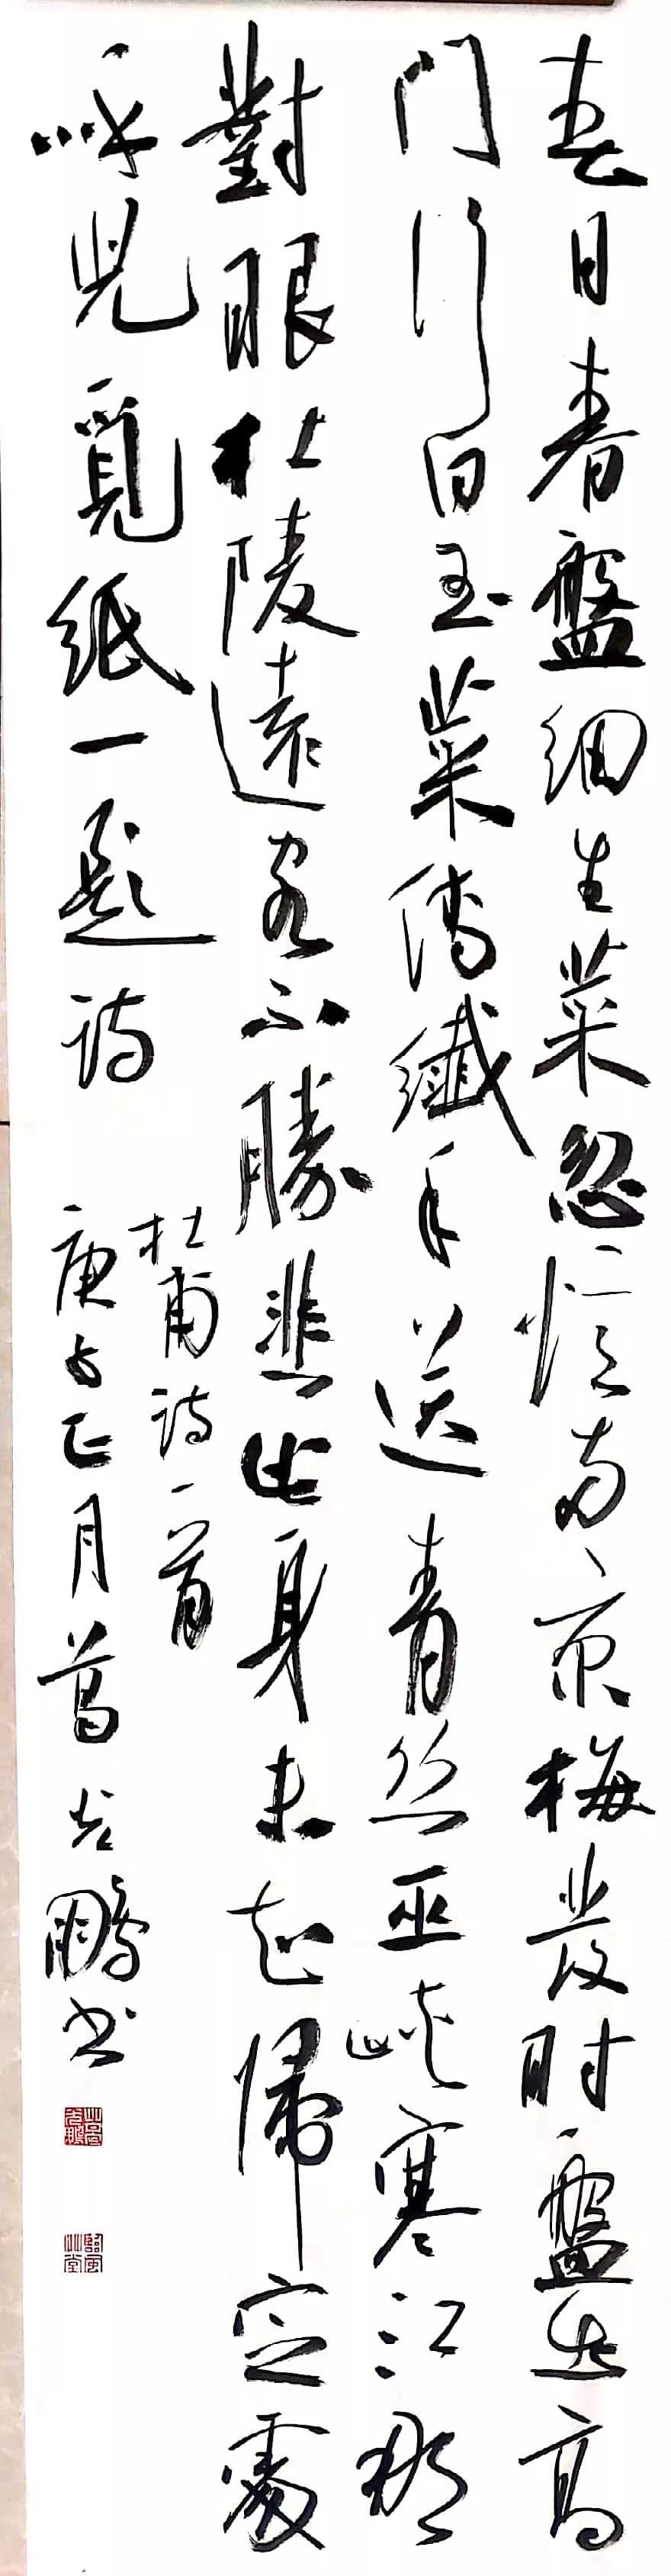 春日春盤細生菜忽憶两京梅發时盤出高
门行白玉菜傳纖手送青丝巫峡寒江那
對眼杜陵遠客不勝悲此身未知歸定處
呼兒覓紙一题诗
杜甫诗一首
庚子正月葛光鵬书